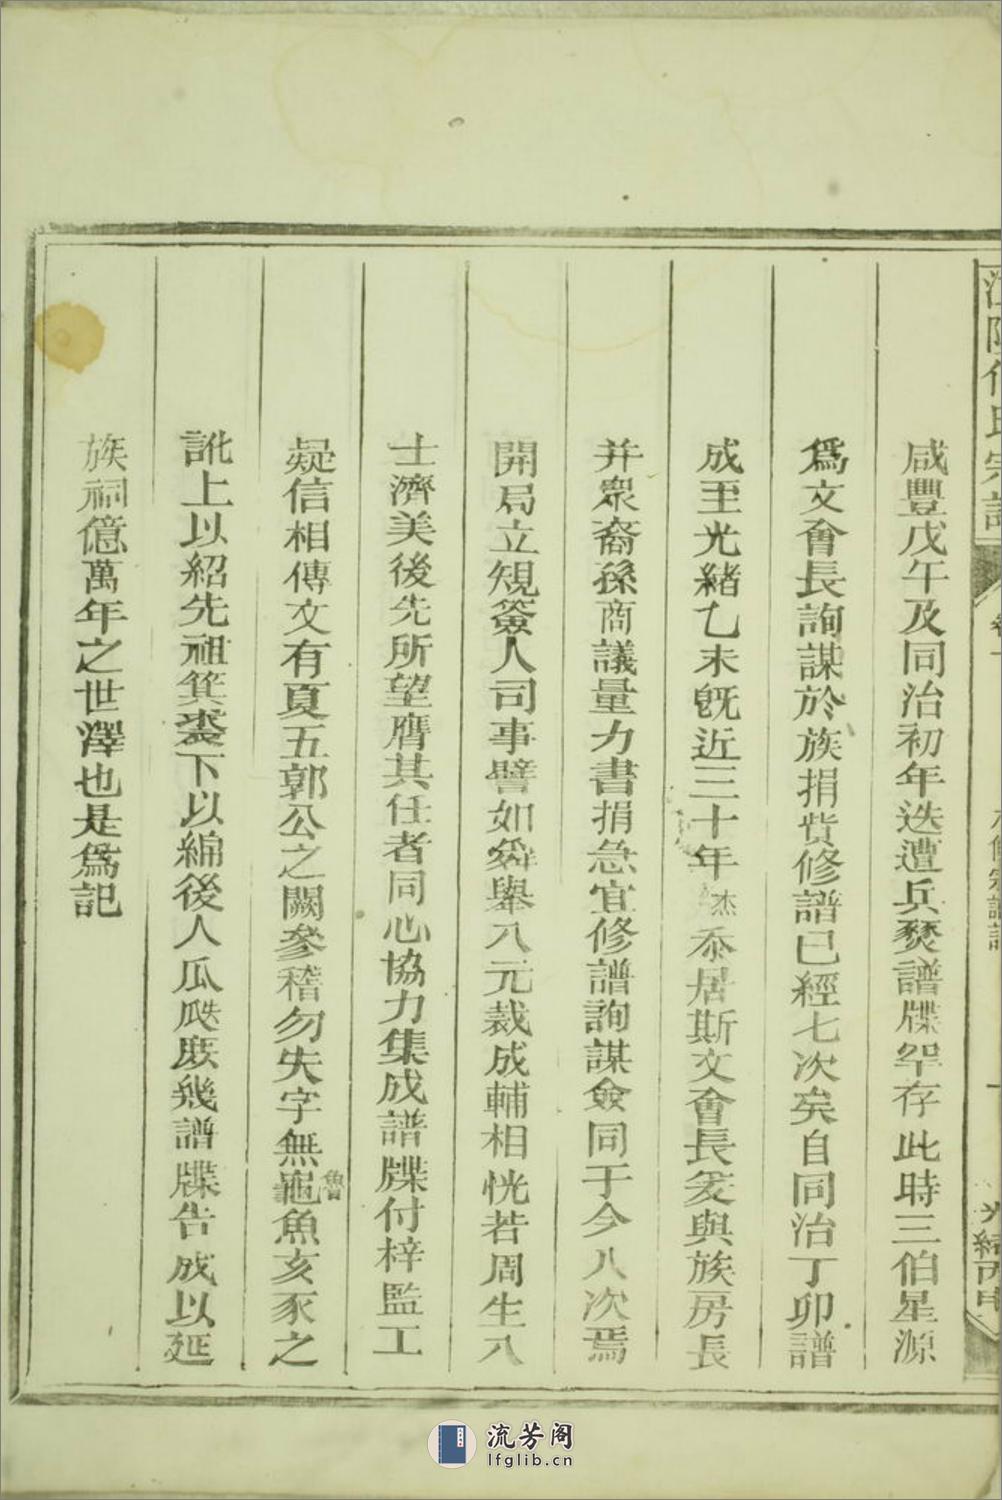 咸豐戊午及同治初年迭遭兵燹譜牒罕存此時三伯星源
爲文會長詢謀於族捐貲修譜已經七次矣自同治丁卯譜
成至光緒乙未旣近三十年杰忝居斯文會長爰與族房長
并衆裔孫商議量力書捐急宜修譜詢謀僉同于今八次焉
開局立規簽人司事譬如舜舉八元裁成輔相恍若周生八
士濟美後先所望膺其任者同心協力集成譜牒付梓監工
疑信相傳文有夏五郭公之闕參稽勿失字無魯龜魚亥豕之
訛上以紹先祖箕裘下以綿後人瓜瓞庶幾譜牒告成以延
族祠億萬年之世澤也是爲記
八修宗譜記
光緒丙申
流芳阁
lfglib.cn